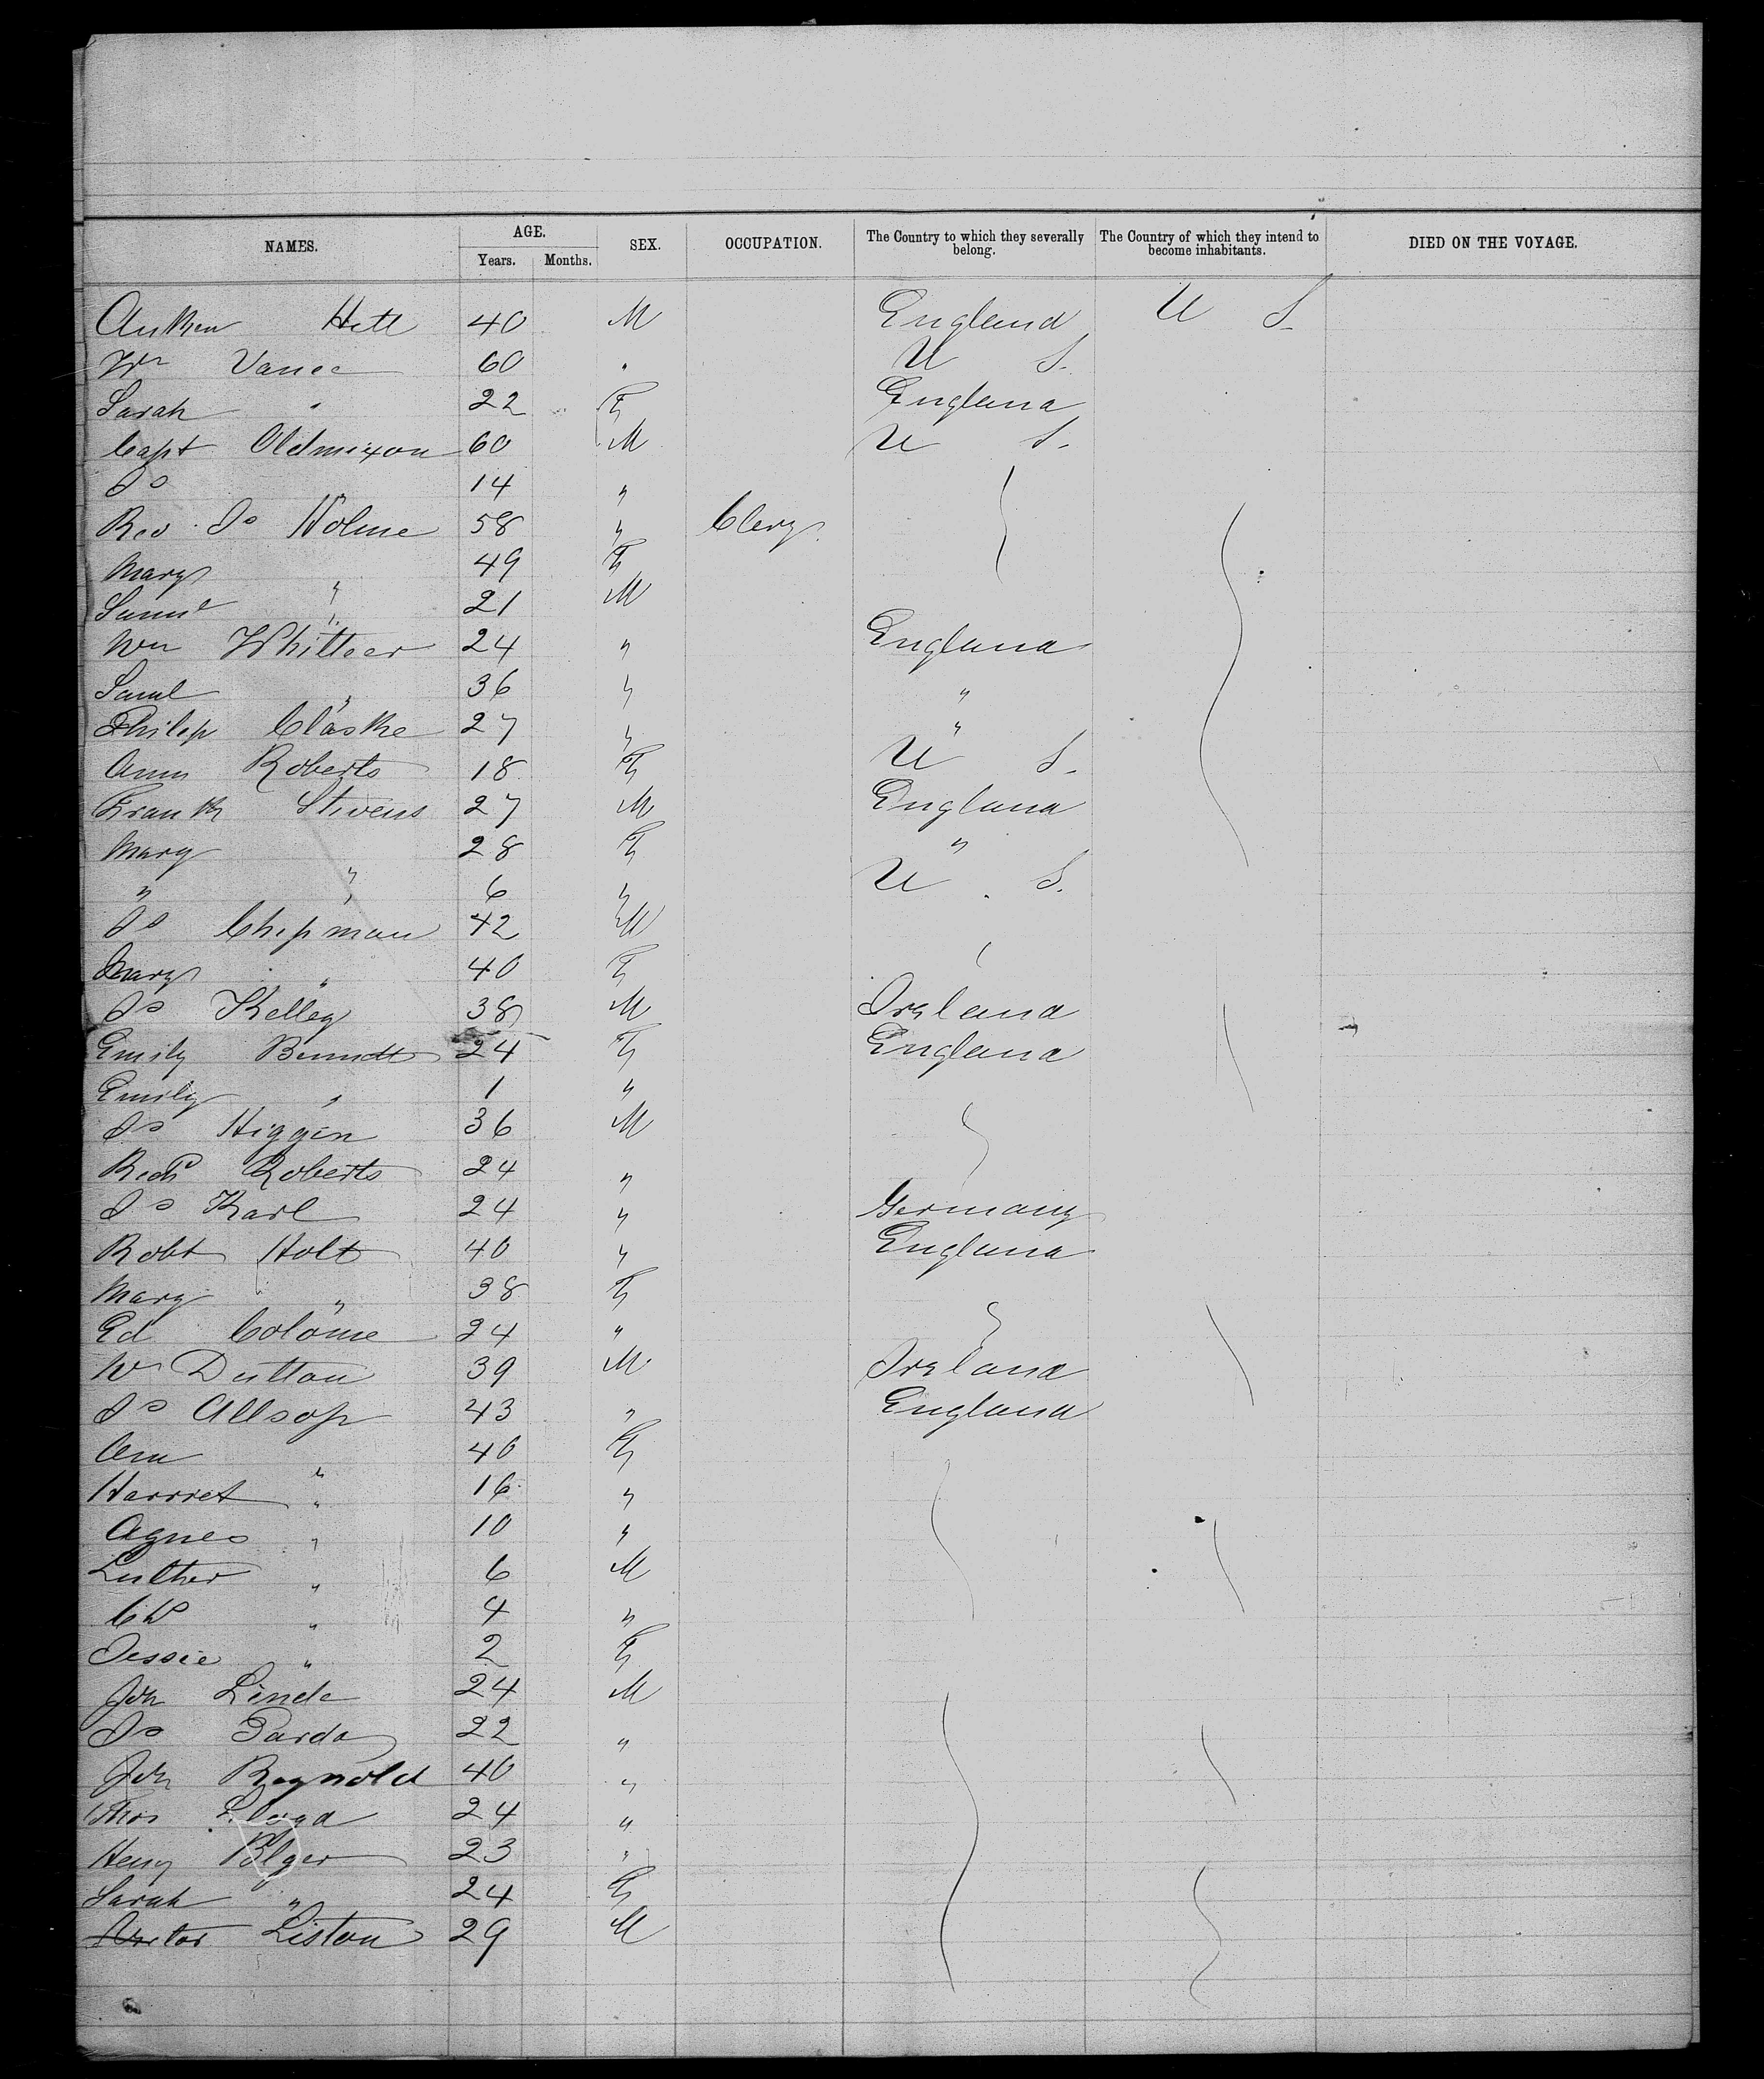 NAMES. AGE. Years. Months. SEX. OCCUPATION. The Country to which they severally belong. The Country of which they intend to become inhabitants. DIED ON THE VOYAGE.
Hill 40 M England U S.
Wm Vance 60 " U S.
Sarah " 22 F England
Capt Oldmixon 60 M U S.
Jo " 14 "
Rev. Jo Holme 58 " Clerg.
Mary " 49 F
Saml " 21 M
Wm Whitteer 24 " England
Saml " 36 " "
Philip Claske 27 " "
Ann Roberts 18 F U S.
Frank Stivens 27 M England
Mary " 28 F "
" " 6 " U S.
Jo Chipman 42 M
Mary " 40 F
Jo Kelley 38 M Ireland
Emily 24 F England
Emily " 1 "
Jo Higgin 36 M
Richd Roberts 24 "
Jo Karl 24 " Germany
Robt Holt 40 " England
Mary " 38 F
Ed 24 "
Wm Dutton 39 M Ireland
Jo Allsop 43 " England
Ann " 40 F
Harriet " 16 "
Agnes " 10 "
Luther " 6 M
" 4 "
Jessie " 2 F
Joh Linde 24 M
Jo Pardo 22 "
Joh Reynold 40 "
Thos Lloyd 24 "
Heny 23 "
Sarah " 24 F
Liston 29 M